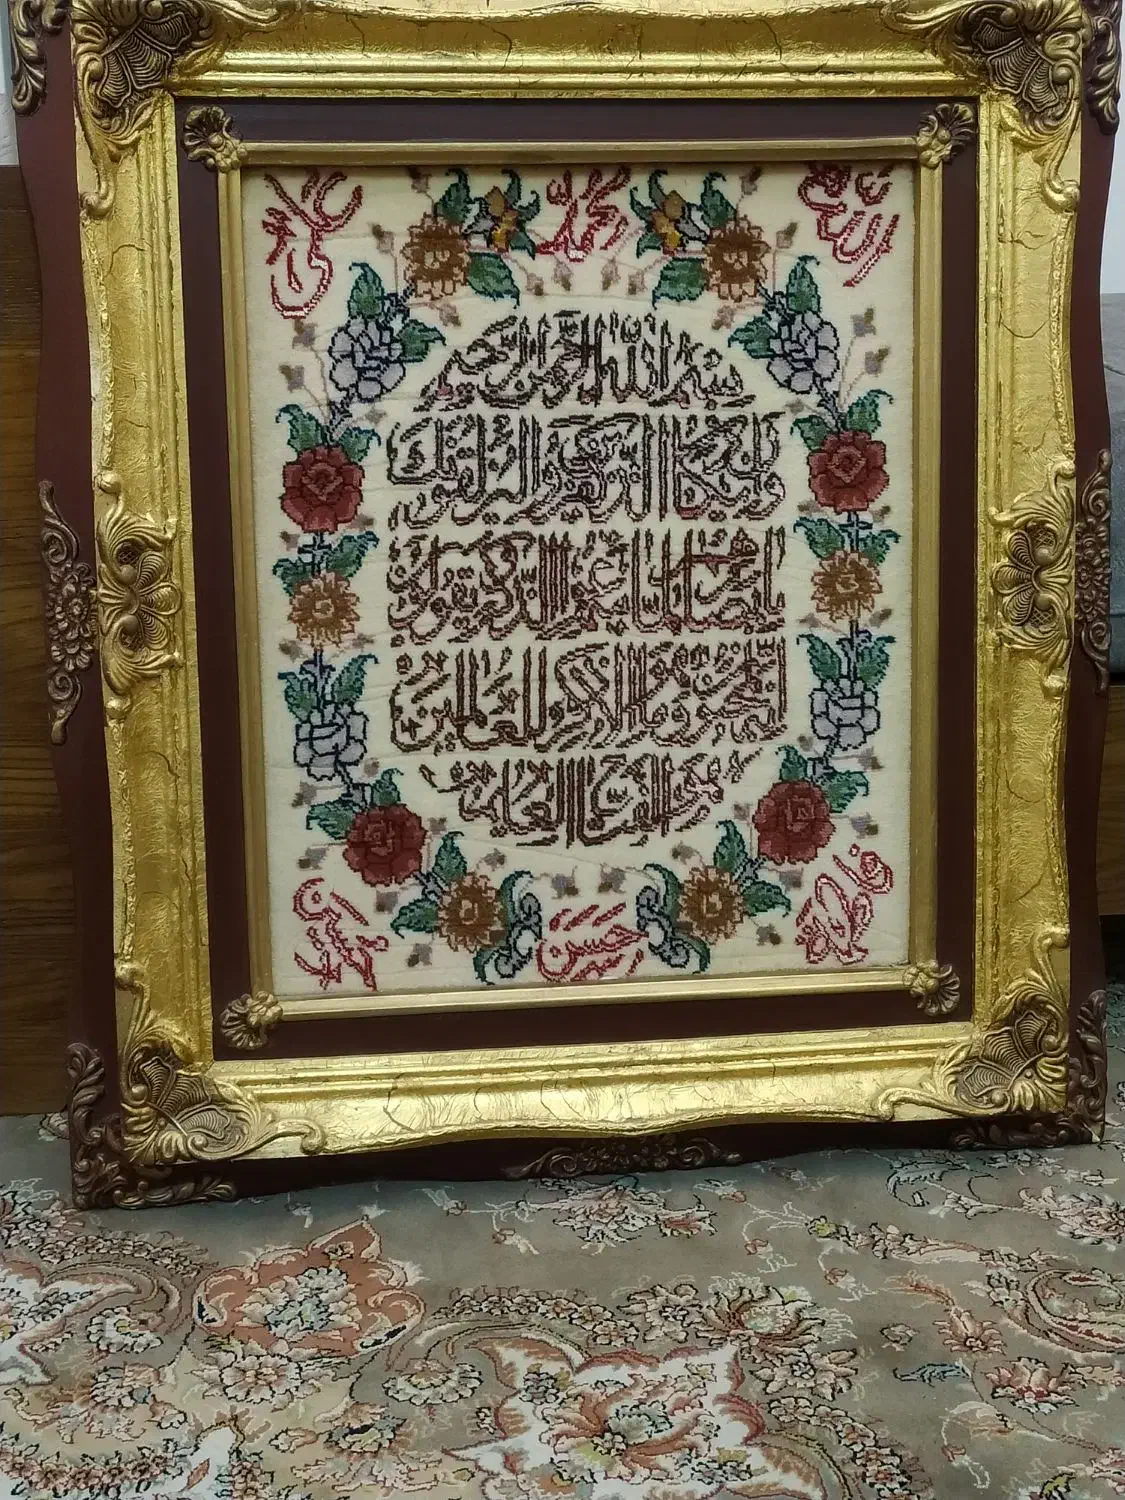 الله
محمد
علی
بسم الله الرحمن الرحیم
وان یکاد الذین کفروا لیزلقونک
بابصارهم لما سمعوا الذکر و یقولون
انه لمجنون و ما هو الا ذکر للعالمین
العظیم
فاطمه
حسن
حسین